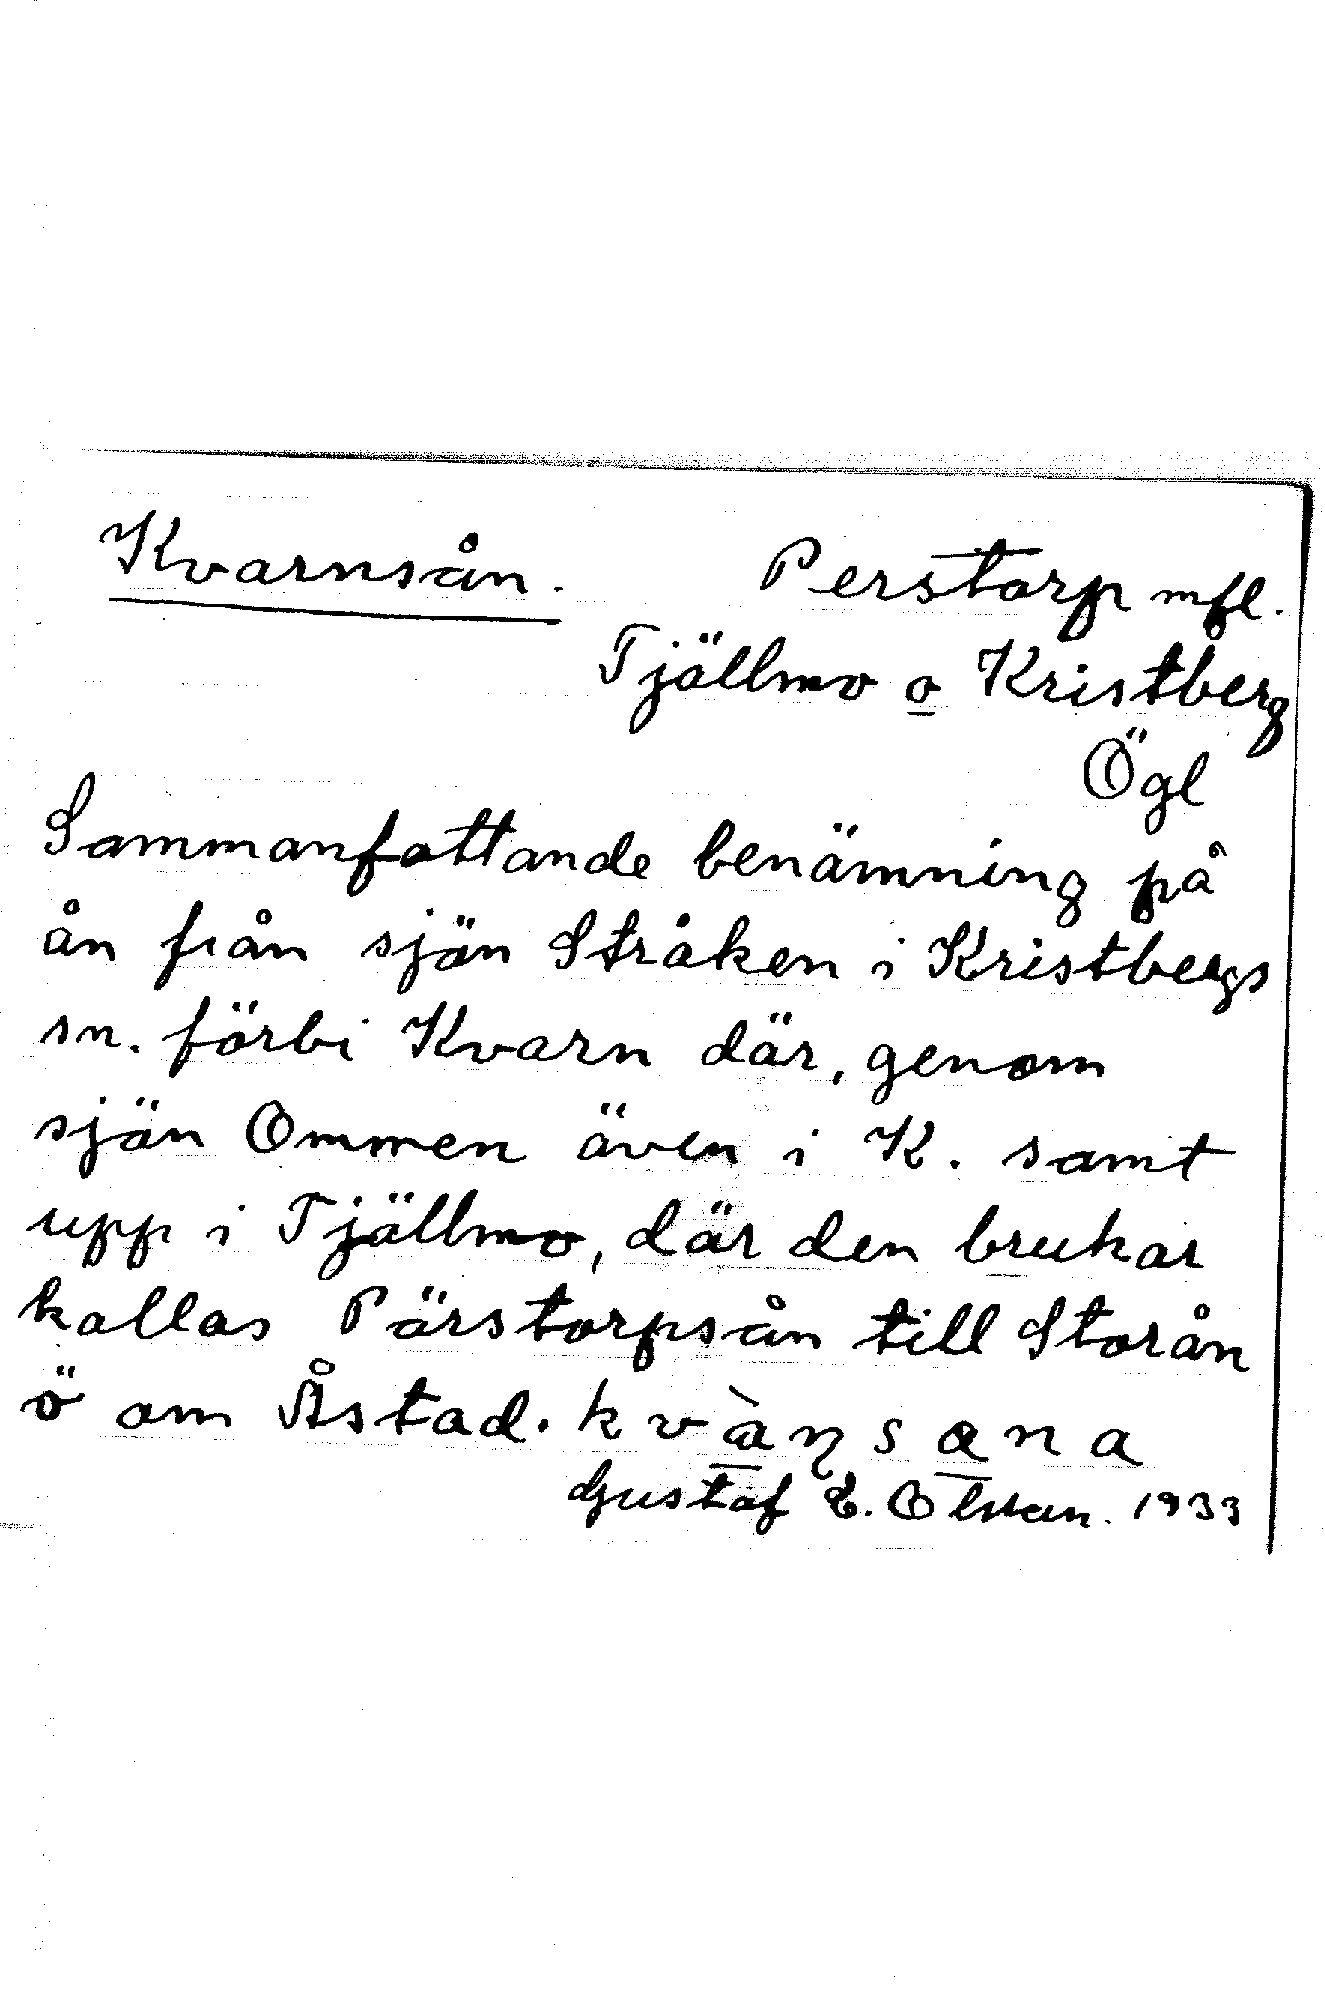 Kvarnsån. Perstorp mfl.
Tjällmo o Kristberg
Ögl
Sammanfattande benämning på
ån från sjön Stråken i Kristbergs
sn. förbi Kvarn där, genom
sjön Ommen även i K. samt
upp i Tjällmo, där den brukar
kallas Pärstorpsån till Storån
ö om Åstad. kvàɳsana
Gustaf E. Olsson. 1933